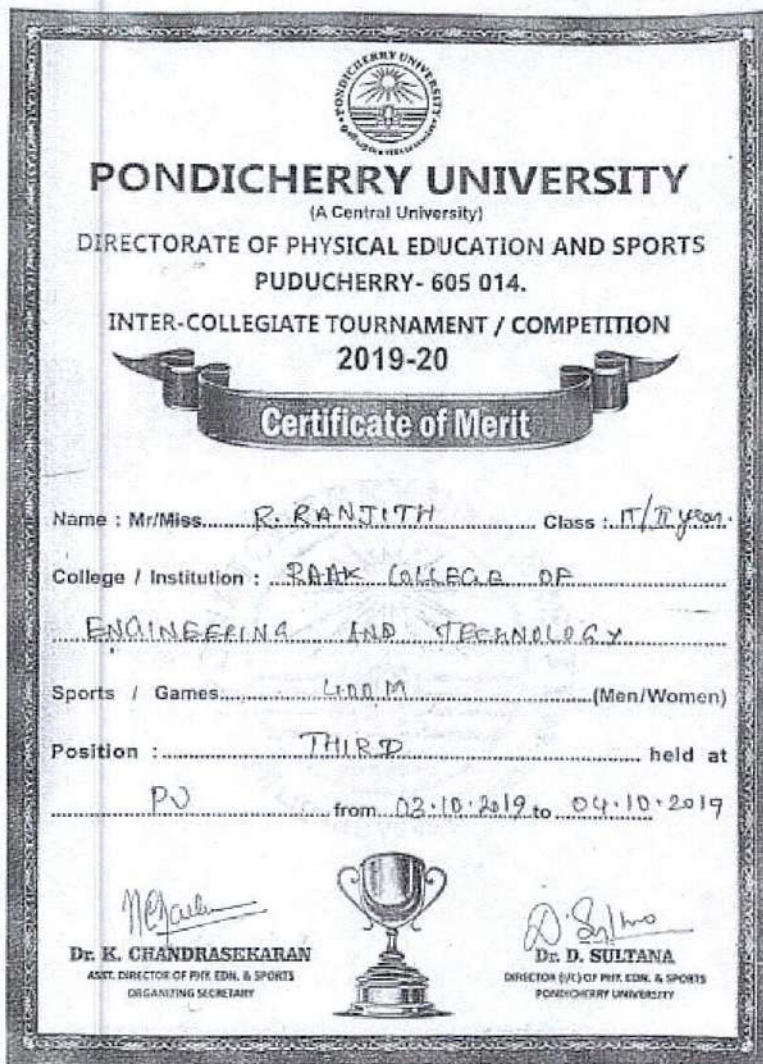 PONDICHERRY UNIVERSITY
PONDICHERRY UNIVERSITY
(A Central University)
DIRECTORATE OF PHYSICAL EDUCATION AND SPORTS
PUDUCHERRY- 605 014.
INTER-COLLEGIATE TOURNAMENT / COMPETITION
2019-20
Certificate of Merit
Name : Mr/Miss R. RANJITH Class : IT/II year.
College / Institution : RAAK COLLEGE OF
ENGINEERING AND TECHNOLOGY
Sports / Games 400 M (Men/Women)
Position : THIRD held at
PU from 03.10.2019 to 04.10.2019
Dr. K. CHANDRASEKARAN
ASST. DIRECTOR OF PHY. EDN. & SPORTS
ORGANIZING SECRETARY
D. Sultana
Dr. D. SULTANA
DIRECTOR (I/C) OF PHY. EDN. & SPORTS
PONDICHERRY UNIVERSITY